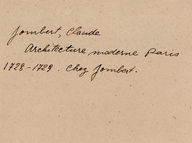 Jombert, Claude
Architecture moderne Paris
1728-1729. Chez Jombert.